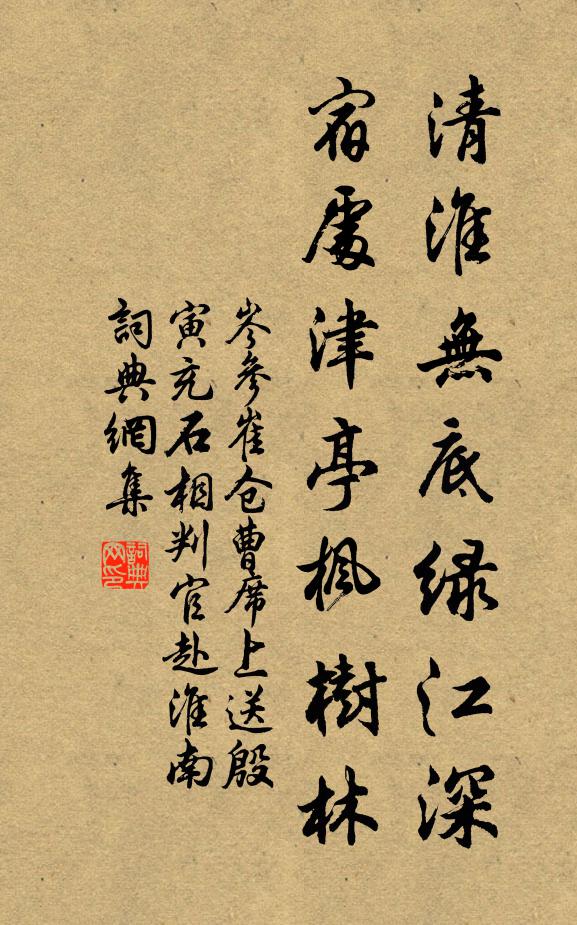 清淮無底緑江深
宿處津亭楓樹林
岑參崔仓曹席上送殷
寅充石相判官赴淮南
詞典網集
詞典网印